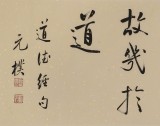 故幾於
道
道德經句
元樸